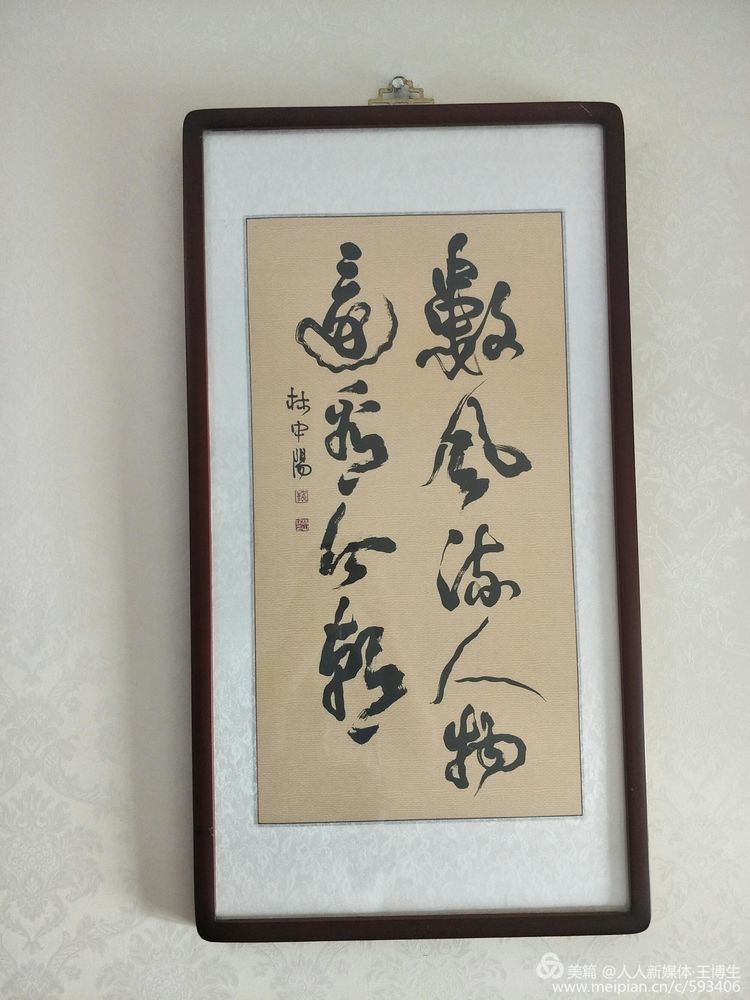 數風流人物
還看今朝
林中陽
美篇 @人人新媒体·王博生
www.meipian.cn/c/593406